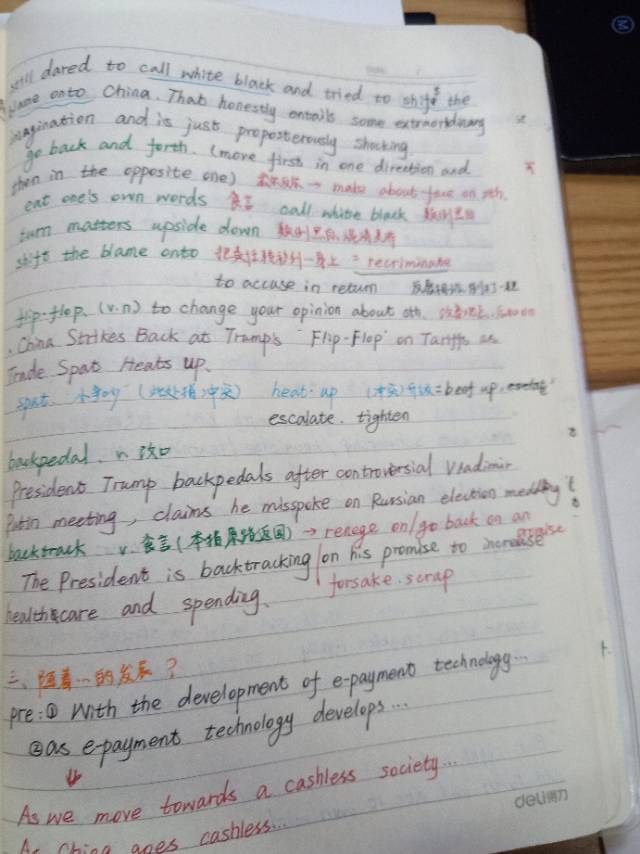 still dared to call white black and tried to shift the
blame onto China. That honestly entails some extraordinary
imagination and is just proposterously shocking
go back and forth. (move first in one direction and
then in the opposite one) → make about face on sth.
eat one's own words 食言 call white black 颠倒黑白
turn matters upside down 颠倒黑白,混淆是非
shift the blame onto 把责任转移到…身上 = recriminate
to accuse in return
flip-flop (v.n) to change your opinion about sth.
China Strikes Back at Trump's "Flip-Flop" on Tariffs as
Trade Spat Heats up.
spat. "小争吵" (此处指冲突) heat up (冲突)升级 = beef up.
escalate. tighten
backpedal. n 改口
President Trump backpedals after controversial Vladimir
Putin meeting, claims he misspoke on Russian election meddling
backtrack v. 食言(本指原路返回) → renege on/go back on an
The President is backtracking on his promise to increase
forsake. scrap
healthcare and spending.
三、随着…的发展?
pre: ① With the development of e-payment technology...
② as e-payment technology develops...
↓
As we move towards a cashless society...
As China goes cashless...
deli得力